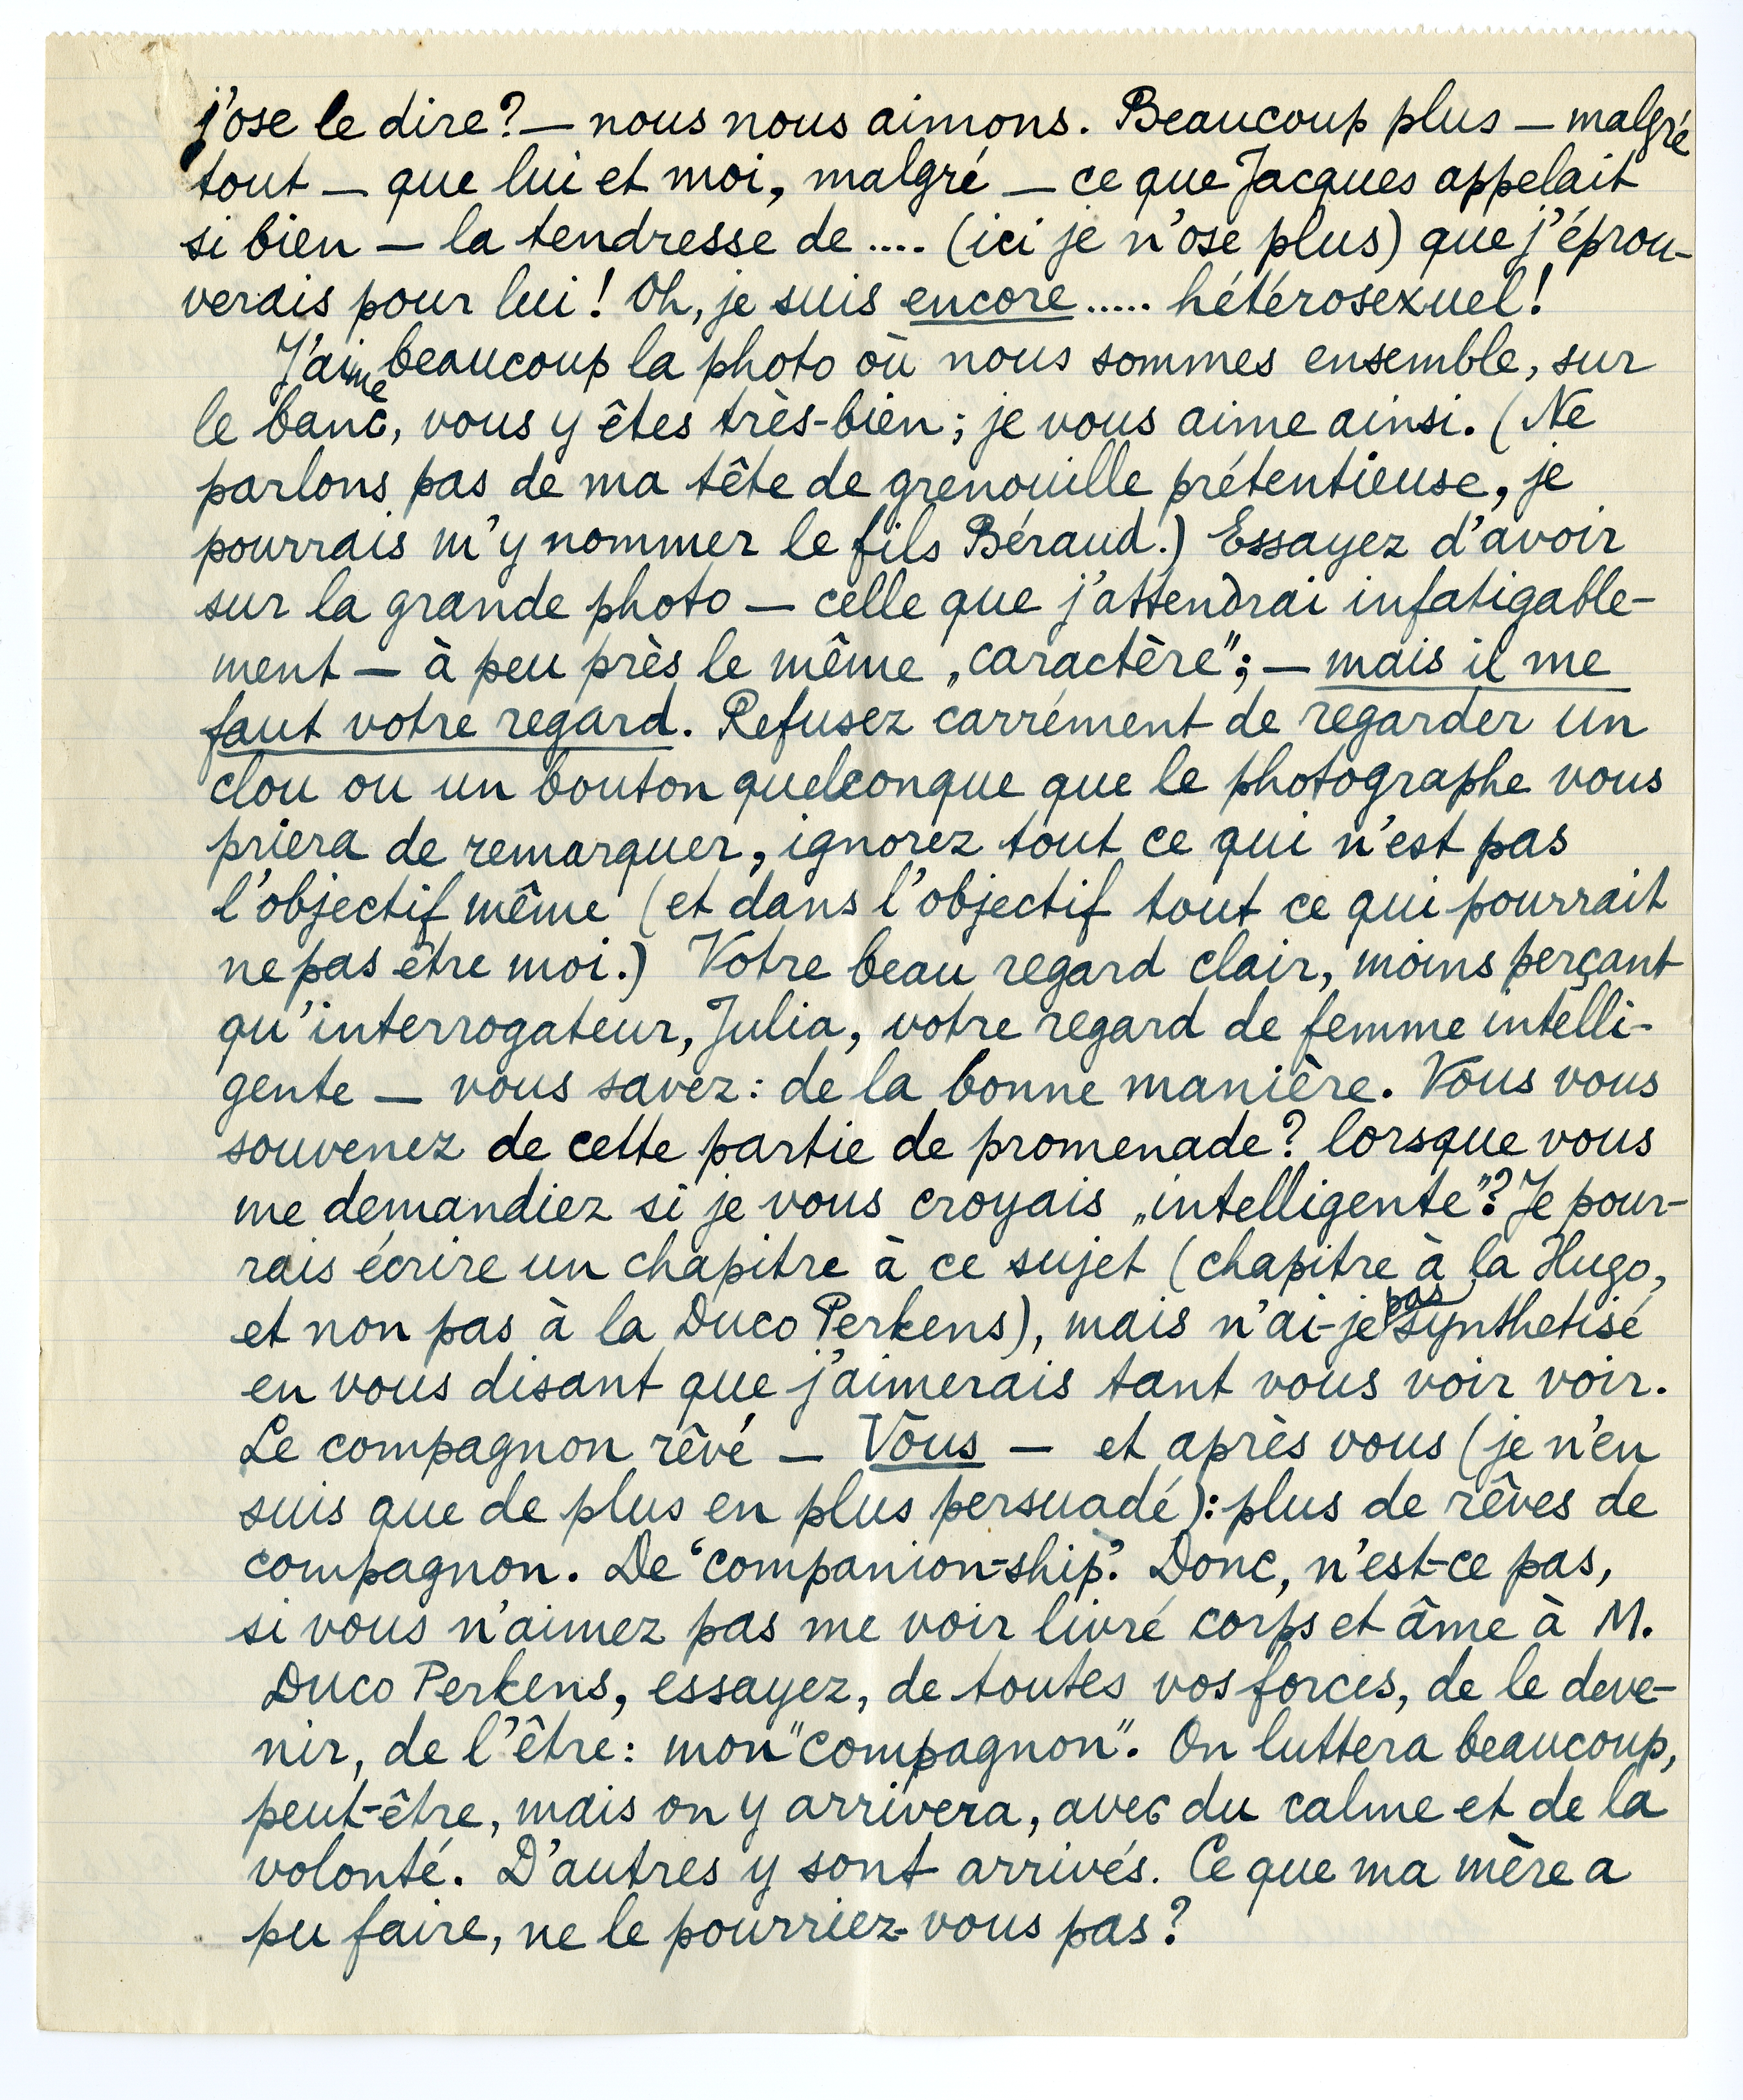 j'ose le dire? — nous nous aimons. Beaucoup plus — malgré
tout — que lui et moi, malgré — ce que Jacques appelait
si bien — la tendresse de .... (ici je n'ose plus) que j'éprou-
verais pour lui! Oh, je suis encore ..... hétérosexuel!
J'aime beaucoup la photo où nous sommes ensemble, sur
le banc, vous y êtes très-bien; je vous aime ainsi. (Ne
parlons pas de ma tête de grenouille prétentieuse, je
pourrais m'y nommer le fils Béraud.) Essayez d'avoir
sur la grande photo — celle que j'attendrai infatigable-
ment — à peu près le même „caractère"; — mais il me
faut votre regard. Refusez carrément de regarder un
clou ou un bouton quelconque que le photographe vous
priera de remarquer, ignorez tout ce qui n'est pas
l'objectif même (et dans l'objectif tout ce qui pourrait
ne pas être moi.) Votre beau regard clair, moins perçant
qu'interrogateur, Julia, votre regard de femme intelli-
gente — vous savez: de la bonne manière. Vous vous
souvenez de cette partie de promenade? lorsque vous
me demandiez si je vous croyais „intelligente"? Je pour-
rais écrire un chapitre à ce sujet (chapitre à la Hugo,
et non pas à la Duco Perkens), mais n'ai-je pas synthetisé
en vous disant que j'aimerais tant vous voir voir.
Le compagnon rêvé — Vous — et après vous (je n'en
suis que de plus en plus persuadé): plus de rêves de
compagnon. De 'companion-ship'. Donc, n'est-ce pas,
si vous n'aimez pas me voir livré corps et âme à M.
Duco Perkens, essayez, de toutes vos forces, de le deve-
nir, de l'être: mon "compagnon". On luttera beaucoup,
peut-être, mais on y arrivera, avec du calme et de la
volonté. D'autres y sont arrivés. Ce que ma mère a
pu faire, ne le pourriez-vous pas?